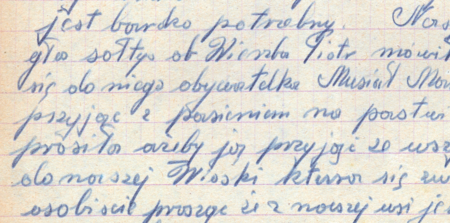 jest bardzo potrzebny. Nas
głos sołtys ob Wierzba Piotr mówił
się do niego obywatelka Musiał Mar
przyjąć z pasieniem na pastwi
prosiła ażeby ją przyjąć ze wsz
do naszej Wioski która się zw
osobiście proszęc że z naszej wsi je